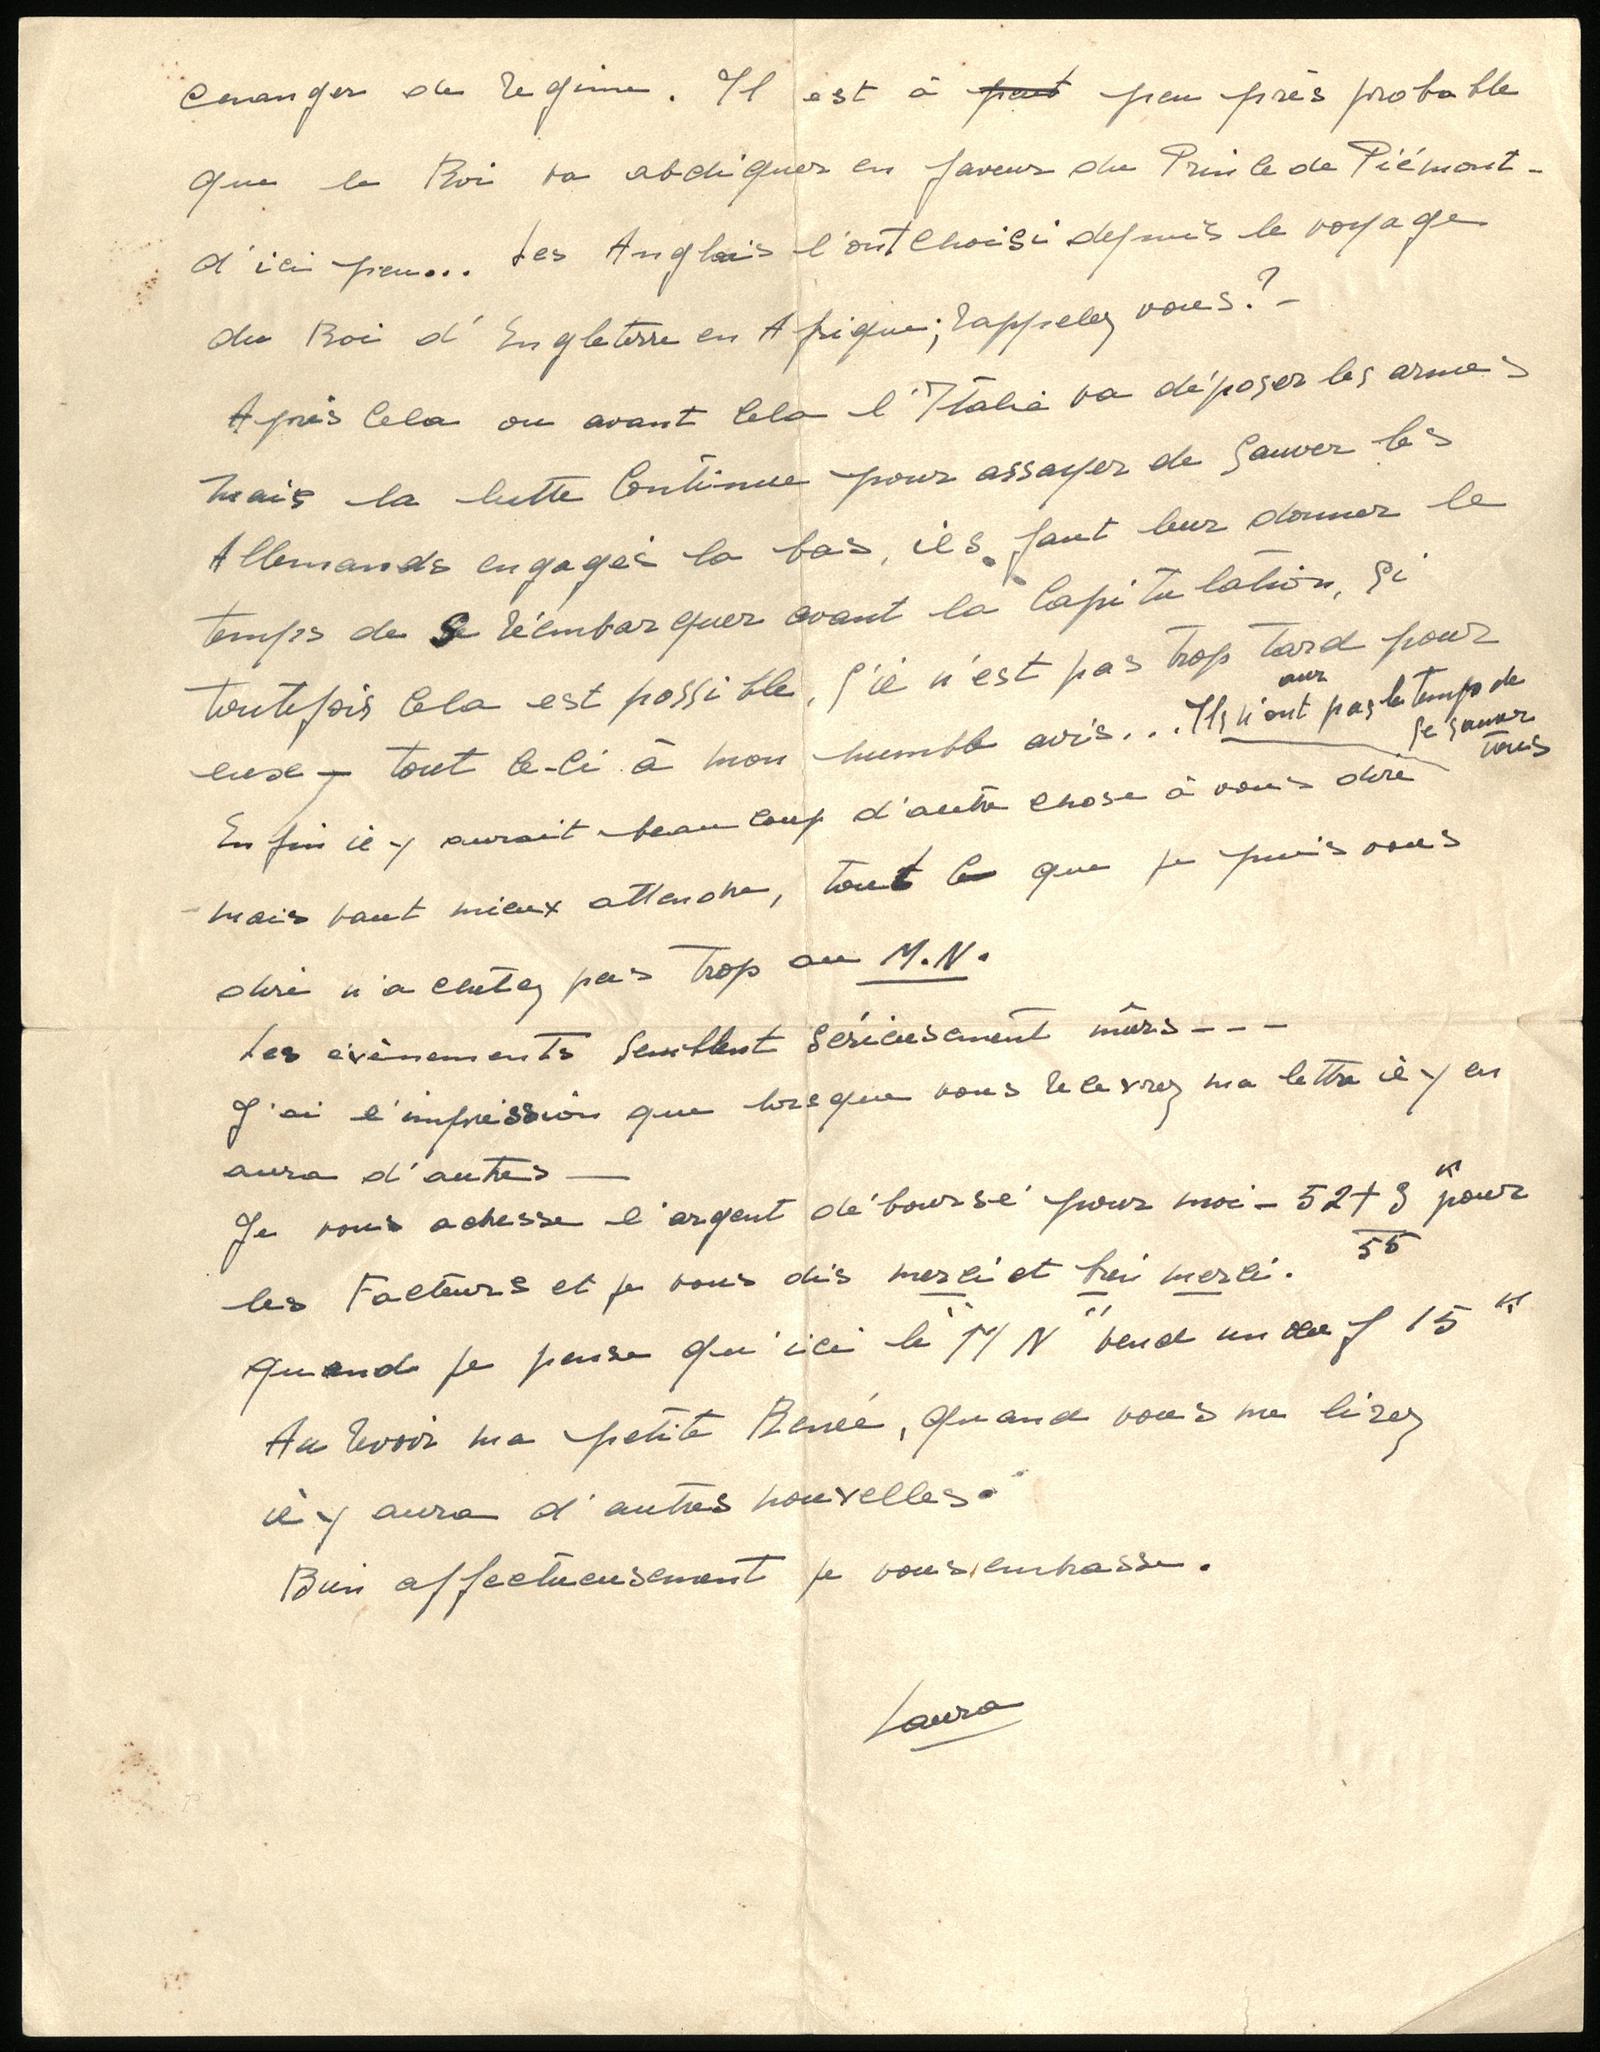 changer de régime. Il est à peut peu près probable
que le Roi va abdiquer en faveur du Prince de Piémont -
d'ici peu... Les Anglais l'ont choisi depuis le voyage
du Roi d'Engleterre en Afrique; rappelez vous?-
Après cela ou avant cela l'Italie va déposer les armes
mais la lutte continue pour assayer de sauver les
Allemands engagés la bas, ils faut leur donner le
temps de se réembarquer avant la capitulation, si
toutefois cela est possible, s'il n'est pas trop tard pour
eux - tout ce-ci à mon humble avis... Ils n'ont pas le temps de
aur
se sauver
tous
Enfin il y aurait beaucoup d'autre chose à vous dire
mais vaut mieux attendre, tout ce que je puis vous
dire n'achetez pas trop au M.N.
Les évènements semblent sérieusement mûrs - - -
J'ai l'impression que lorsque vous recevrez ma lettre il y en
aura d'autres —
Je vous adresse l'argent déboursé pour moi - 52 + 3 pour
55
les Facteurs et je vous dis merci et bien merci.
quand je pense qu'ici le "M N" vend un oeuf 15
Au revoir ma petite Renée, quand vous me lirez
il y aura d'autres nouvelles.
Bien affectueusement je vous embrasse.
Laura